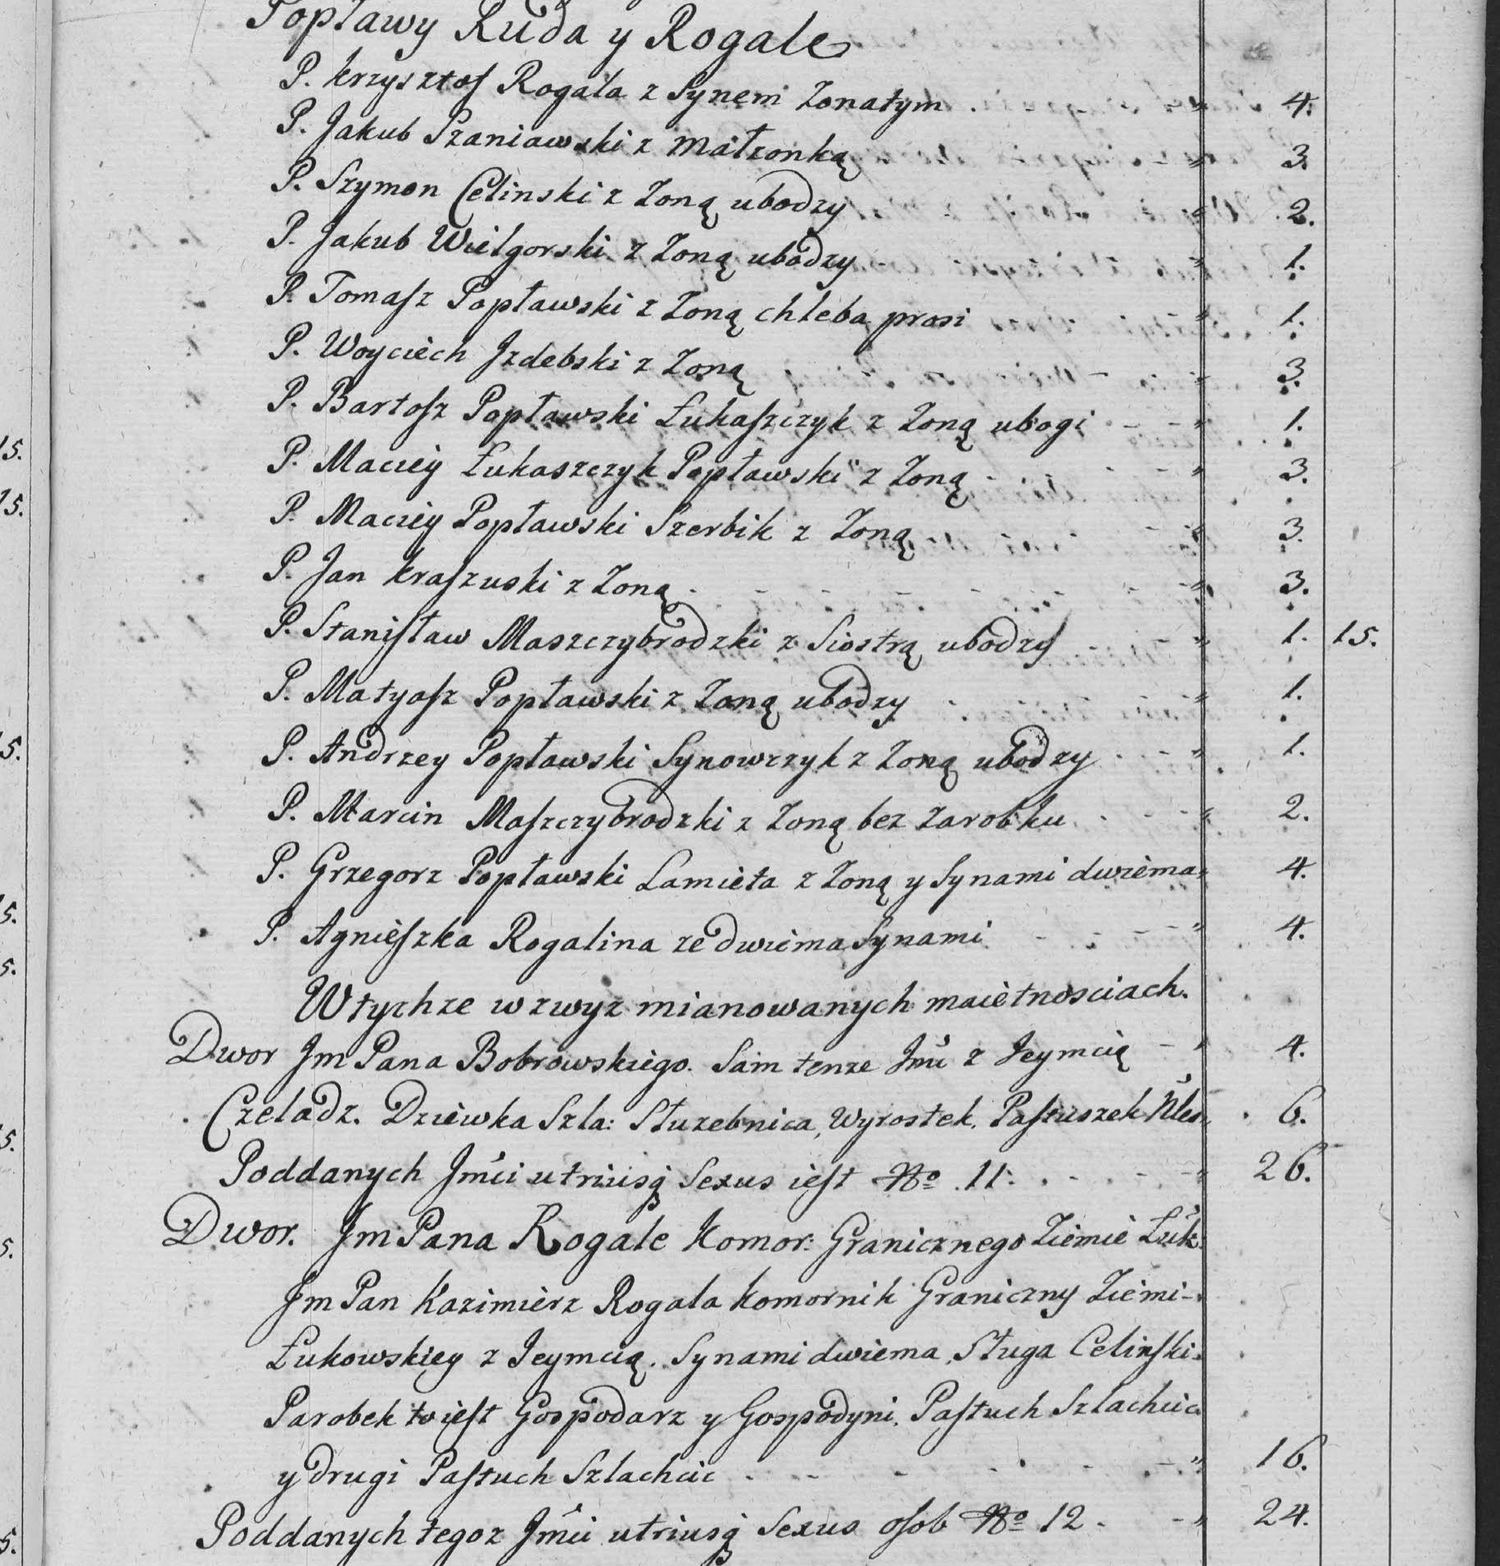 Popławy Ruda y Rogale
P. Krzysztof Rogala z Synem Zonatym . - - " 4.
P. Jakub Szaniawski z Małzonką - - " 3.
P. Szymon Celinski z Zoną ubodzy " 2.
P. Jakub Wielgorski z Zoną ubodzy " 1.
P. Tomasz Popławski z Zoną chleba prosi " 1.
P. Woyciech Jzdebski z Zoną " 3.
P. Bartosz Popławski Łukaszczyk z Zoną ubogi - - " 1.
P. Maciey Łukaszczyk Popławski z Zoną " 3.
P. Maciey Popławski Szerbik z Zoną " 3.
P. Jan Kraszuski z Zoną . " 3.
P. Stanisław Maszczybrodzki z Siostrą ubodzy - " 1. 15.
P. Matyasz Popławski z Zoną ubodzy " 1.
P. Andrzey Popławski Synowczyk z Zoną ubodzy . - " 1.
P. Marcin Maszczybrodzki z Zoną bez Zarobku . - - " 2.
P. Grzegorz Popławski Lamieta z Zoną y Synami dwiema " 4.
P. Agnieszka Rogalina ze dwiema Synami - - - " 4.
W tychze wzwyz mianowanych maiętnosciach.
Dwor Jm Pana Bobrowskiego. Sam tenze Jmć z Jeymcią - " 4.
Czeladz. Dziewka Szla: Słuzebnica, Wyrostek, Pastuszek 6.
Poddanych Jmci utriusq Sexus iest No 11. . - - " 26.
Dwor. Jm Pana Rogale Komor: Granicznego Ziemie Łuk:
Jm Pan Kazimierz Rogala Komornik Graniczny Ziemi-
Łukowskiey z Jeymcią. Synami dwiema, Sługa Celinski.
Parobek to iest Gospodarz y Gospodyni, Pastuch Szlachcic
y drugi Pastuch Szlachcic - - - " 16.
Poddanych tegoz Jmci utriusq Sexus osob No 12. - " 24.
15.
15.
5.
5.
5.
5.
5.
5.